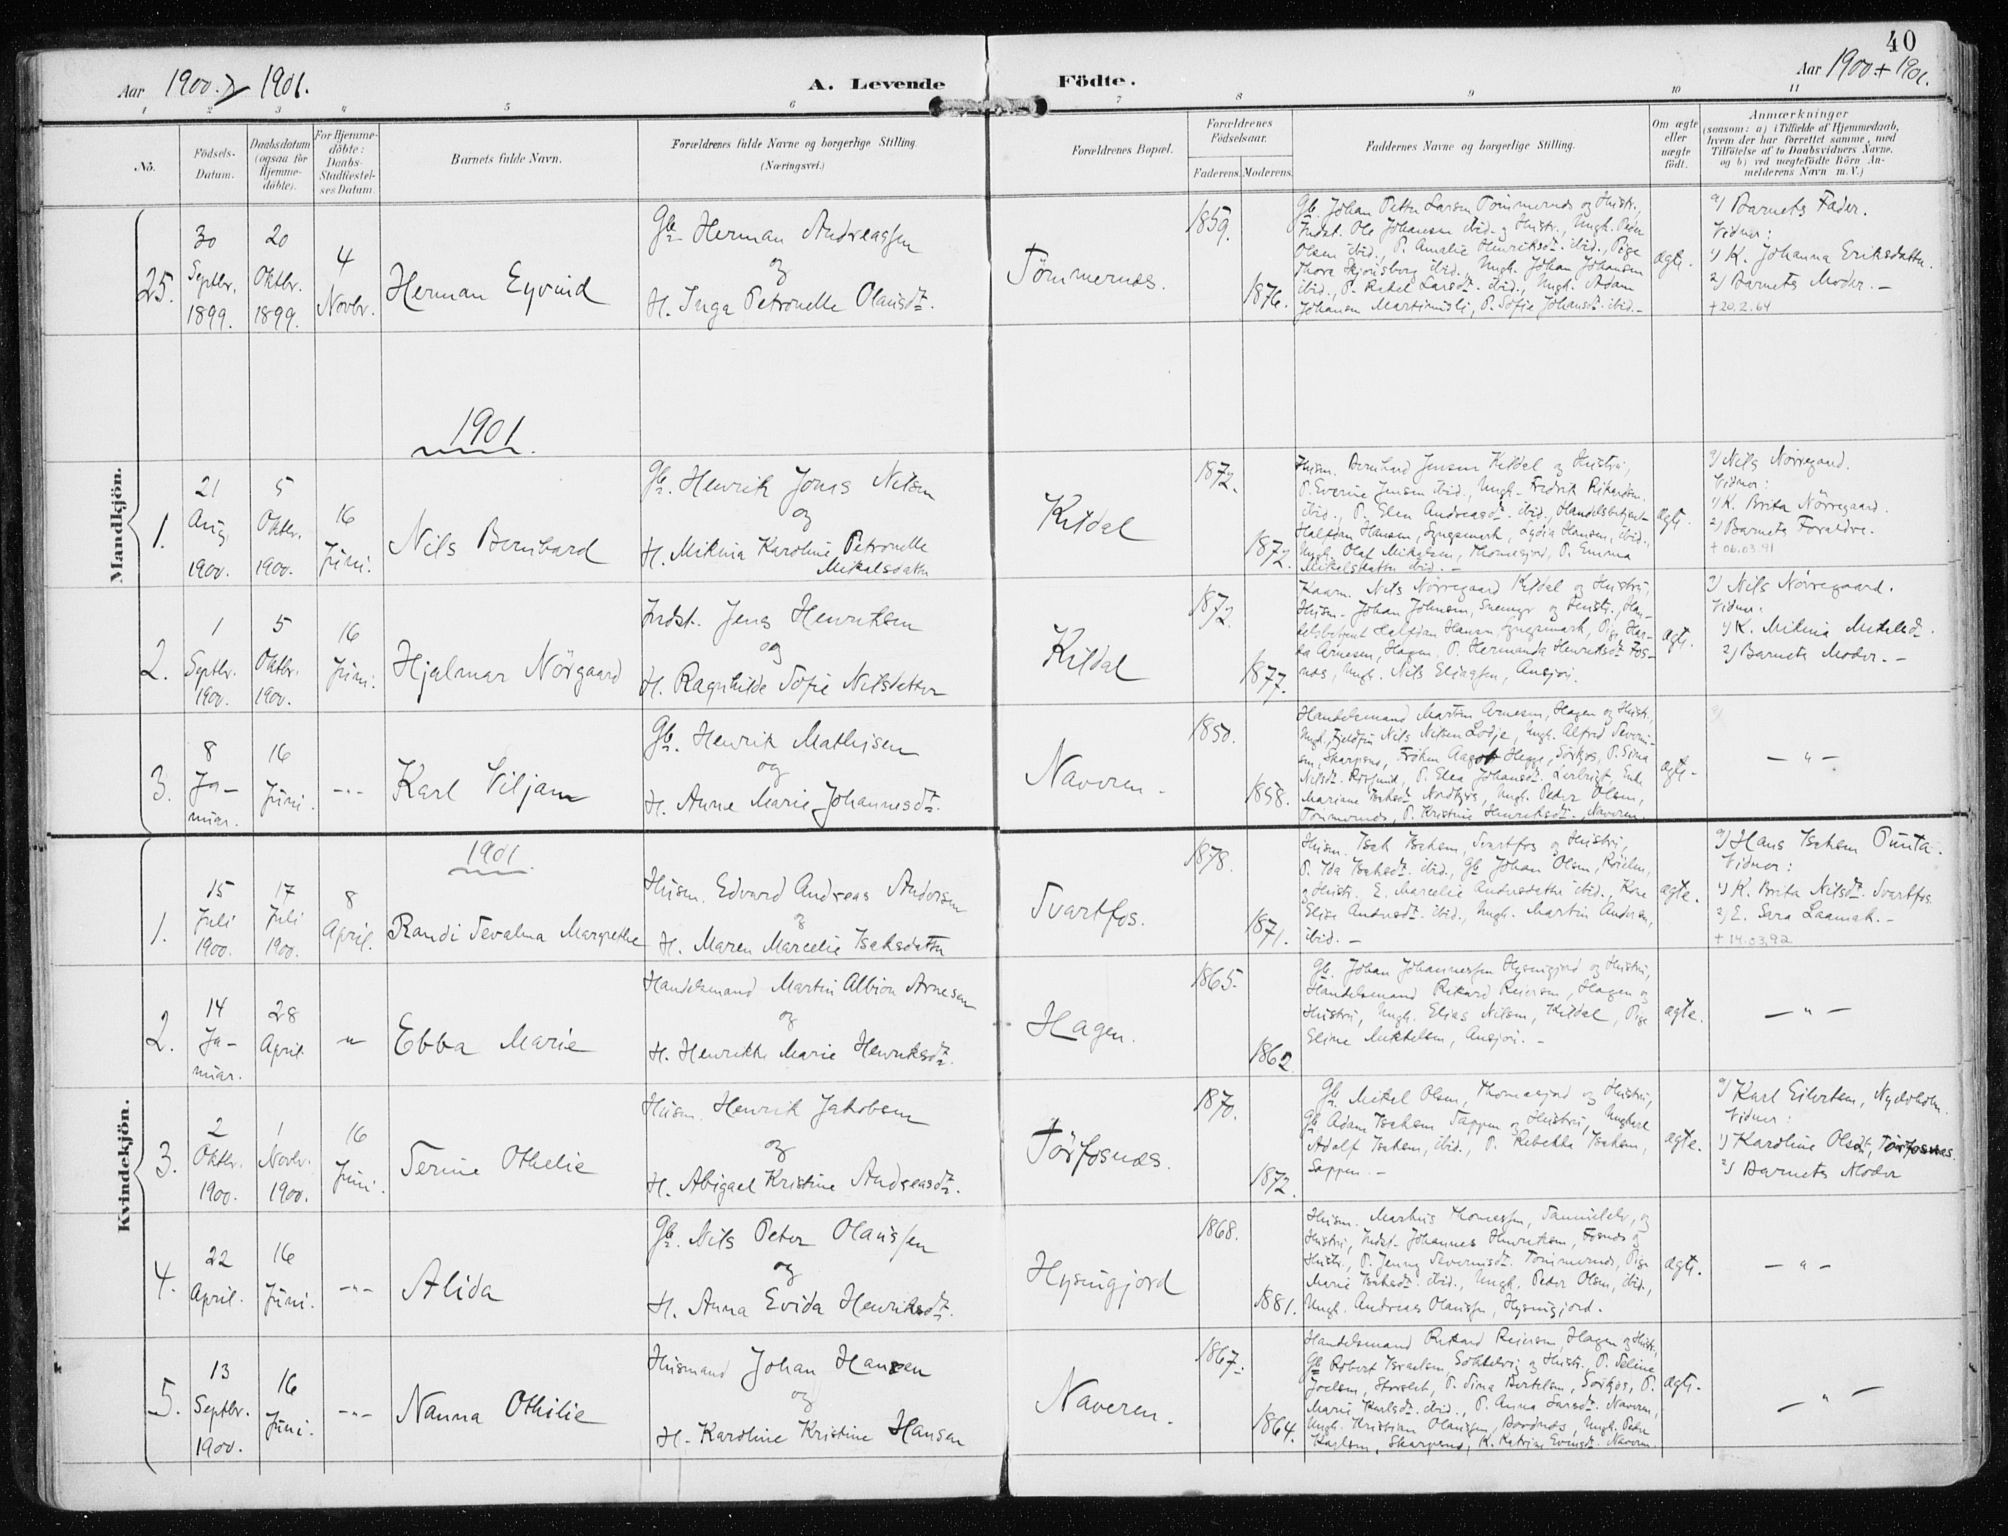 40
Aar 1900 & 1901.
A. Levende Födte.
Aar 1900 + 1901.
1 2 3 4 5 6 7 8 9 10 11
No.
Födsels-
Datum.
Daabsdatum
(ogsaa för
Hjemme-
döbte).
For Hjemme-
döbte:
Daabs-
Stadfæstel-
ses Datum.
Barnets fulde Navn.
Forældrenes fulde Navne og borgerlige Stilling.
(Næringsvei.)
Forældrenes Bopæl.
Forældrenes
Födselsaar.
Faderens. Moderens.
Faddernes Navne og borgerlige Stilling.
Om ægte
eller
uægte
födt.
Anmærkninger
(saasom: a) i Tilfælde af Hjemmedaab,
hvem der har forrettet samme, med
Tilföielse af to Daabsvidners Navne.
og b) ved uægtefödte Börn An-
melderens Navn m. V.)
Mandkjön.
25.
30
Septbr.
1899.
20
Oktbr.
1899.
4
Novbr.
Herman Eyvind
Gbr. Herman Andreassen
og
H. Inga Petronelle Olausdtr.
Tömmernes.
1859.
1876.
Gb. Johan Petter Larsen Tömmernes og Hustr.,
Indst. Ole Johansen ibid. og Hustr., Ungk. Peder
Olsen ibid., P. Amalie Henriksdt. ibid., Pige
Thora ibid., Ungk. Johan Johansen
ibid., P. Rakel Larsdt. ibid., Ungk. Adam
Johansen, P. Sofie Johansdt. ibid. -
ægte.
a) Barnets Fader.
Vidner:
1) K. Johanna Eriksdatter.
2) Barnets Moder. -
+ 20.2.64
1901.
1.
21
Aug.
1900.
5
Oktbr.
1900.
16
Juni.
Nils Bernhard
Gbr. Henrik Jens Nilsen
og
H. Mikina Karoline Petronelle
Mikalsdatter
Kildal
1872.
1872.
Husm. Bernhard Jensen Kildal og Hustru,
P. Everine Jensen ibid., Ungk. Fredrik Rikardsen
ibid., P. Elen Andreasdt. ibid., Handelsbetjent
Halfdan Hansen, Lyngsmark, Lydia Hansen, ibid.,
Ungk. Olaf Mikalsen, Thomasjord, P. Emma
Mikelsdatter ibid. -
ægte.
a) Nils Nörregaard.
Vidner:
1) K. Brita Nörregaard.
2) Barnets Forældre.
+ 06.03.91
2.
1
Septbr.
1900.
5
Oktbr.
1900.
16
Juni.
Hjalmar Nörgaard
Indst. Jens Henriksen
og
H. Ragnhilde Sofie Nilsdatter
Kildal
1872.
1877.
Nils Nörregaard Kildal og Hustru,
Husm. Johan Johnsen, og Hustr., Han-
delsbetjent Halfdan Hansen Lyngsmark, Pige
Arnesen, Hagen, P. Hermanda Henriksdt. Fos-
nes, Ungk. Nils Eliassen, Ansjøn.
ægte.
a) Nils Nörregaard.
Vidner:
1) K. Mikina Mikelsdt.
2) Barnets Moder. -
3.
8
Ja-
nuar.
16
Juni.
-"-
Karl Viljam
Gbr. Henrik Mathisen
og
H. Anne Marie Johannesdt.
Naveren.
1850.
1858.
Handelsmand Martin Arnesen, Hagen og Hustr.,
Nils Nilsen Lodje, Ungk. Alfred Severin-
sen, Skarpenes, Fröken Aagot Hegge, Sörkjos, P. Sina
Nilsdt. P. Elea Johansdt.
Mariane Isaksdt. Nordkjos, Ungk. Peter Olsen,
Tömmernes, P. Kristine Henriksdt., Naveren.
ægte -
- " -
Kvindekjön.
1901.
1.
15
Juli
1900.
17
Juli
1900.
8
April.
Randi Sevalma Margrethe
Husm. Edvard Andreas Andersen
og
H. Maren Marcelie Isaksdatter
Svartfos.
1878.
1871.
Husm. Isak Isaksen, Svartfos og Hustru,
P. Ida Isaksdt. ibid., Gb. Johan Olsen,
og Hustr. E. Marcelie Andersdatter ibid., Kone
Elise Andersdt. ibid., Ungk. Martin Andersen,
ibid. -
ægte.
a) Hans Isaksen Punta.
Vidner:
1) K. Brita Nilsdt. Svartfos
2) E. Sara Laamak. -
+ 14.03.92
2.
14
Ja-
nuar.
28
April
"
Ebba Marie
Handelsmand Martin Albion Arnesen
og
H. Henrikke Marie Henriksdt.
Hagen.
1865.
1862.
Gb. Johan Johannessen Hysingjord og Hustru,
Handelsmand Rikard Reiersen, Hagen og
Hustru, Ungk. Elias Nilsen, Kildal, Pige
Eline Mikkelsen, Ansjøn. -
ægte.
- " -
3.
2
Oktbr.
1900.
1
Novbr.
1900.
16
Juni.
Serine Othelie
Husm. Henrik Jakobsen
og
H. Abigael Kristine Andreasdt.
Törfosnæs.
1870.
1872.
Gb. Mikel Olsen, Thomasjord og Hustru,
Gb. Adam Isaksen Sappen og Hustru, Ungkarl
Adolf Isaksen, ibid., P. Rebekka Isaksen,
Sappen. -
ægte.
a) Karl Eilertsen, Nyelvholm.
Vidner:
1) Karoline Olsdt, Törfosnæs.
2) Barnets Moder
4.
22
April.
16
Juni.
-"-
Alida
Gbr. Nils Peter Olaussen
og
H. Anna Evida Henriksdt.
Hysingjord
1868.
1881.
Husm. Markus Thomassen, Samuelelv, og
Hustru, Indst. Johannes Henriksen, Fosnes og
Hustr., P. Jenny Severinsdt. Tömmernes, Pige
Marie Isaksdt. ibid., Ungk. Peder Olsen, ibid.,
Ungk. Andreas Olaussen, Hysingjord.
ægte.
- " -
5.
13
Septbr.
1900.
16
Juni.
-"-
Nanna Othilie
Husmand Johan Hansen
og
H. Karoline Kristine Hansen
Naveren.
1867.
1864.
Handelsmand Rikard Reiersen, Hagen og Hustr.,
Gb. Robert Israelsen, Sökkelvig og Hustr., P. Seline
Joelsen, Storslet, P. Sina Bertelsen, Sörkjos, P.
Marie Karlsdt. ibid., P. Anna Larsdt. Naveren,
Ungk. Kristian Olaussen, Bordnæs, Ungk. Peder
Karlsen, Skarpenes, K. Katrine Naveren.
ægte.
- " -